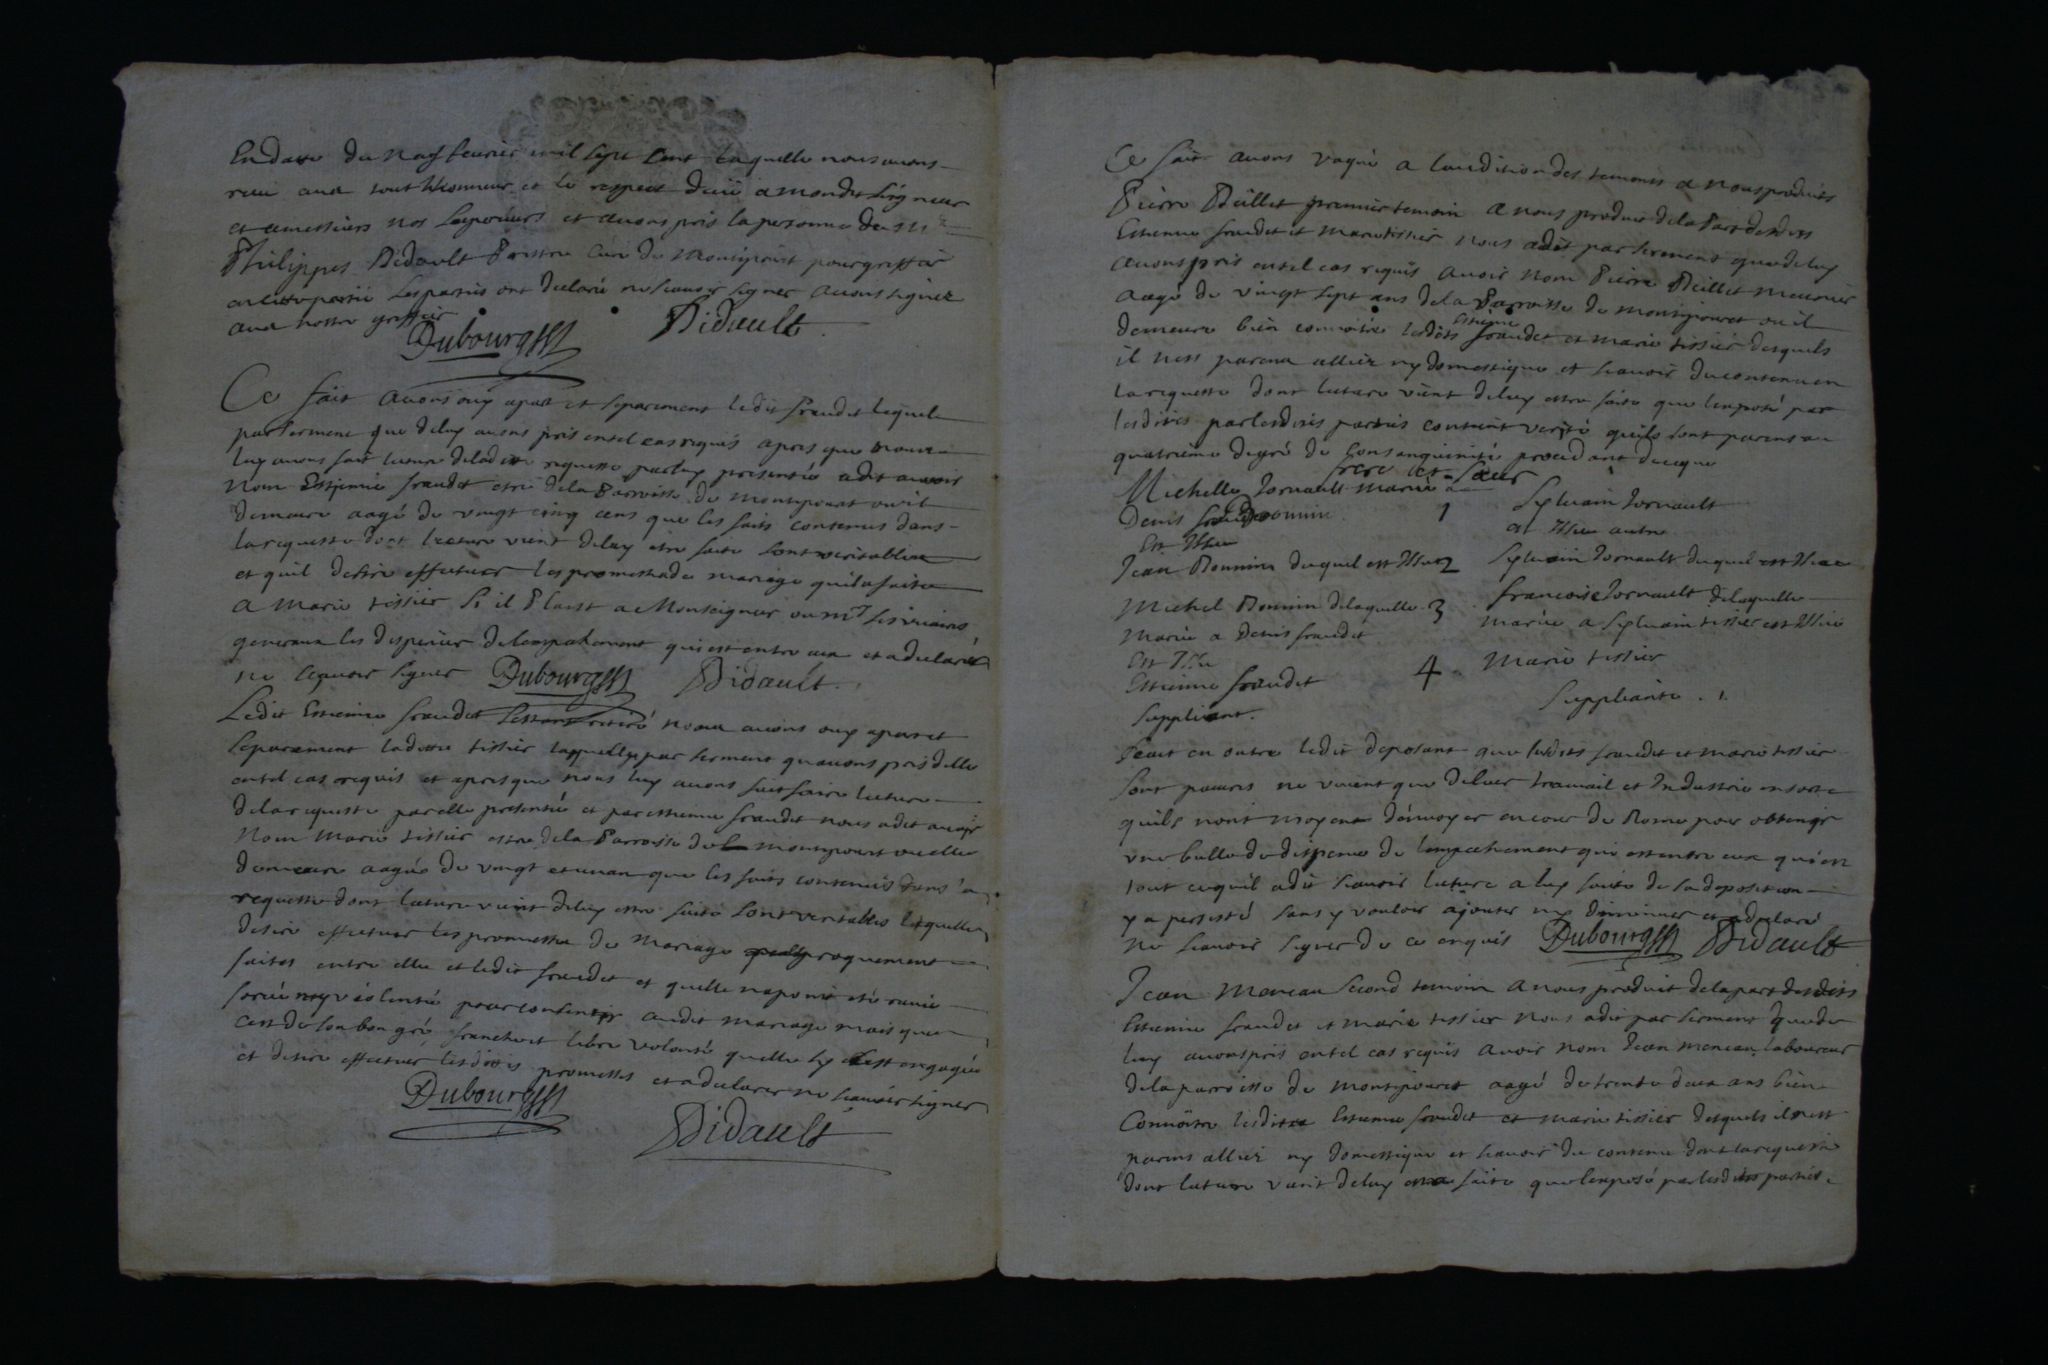 En datte du neuf feurier mil sept cent laquelle nous auons
receu auec tout lhonneur et le respect deüe a mondit seigneur
et a messieurs nos superieurs et auons pris la personne de mre
Philippes Didault Prestre curé de Montipouret pour greffier
en cette partie les parties ont declaré ne scauoir signer auons signé
auec nostre greffier
Dubourg Didault
Ce fait auons ouy apart et separement ledit fraudet lequel
par serment que de luy auons pris en tel cas requis apres que nous
luy auons fait lecture de ladite requeste par luy presentée a dit auoir
nom Estienne fraudet estre de la Parroisse de montipouret ou il
demeure aagé de vingt cinq ans que les faits contenus dans
la requeste dont lecture vient de luy estre faite sont veritables
et quil desire effectuer les promesses de mariage quil a faite
a Marie tissier si il Plaist a Monseigneur ou mrs ses vicaires
generaux les dispenser de lempechement qui est entre eux et a declaré
ne scauoir signer Dubourg Didault
Ledit Estienne fraudet sestant retiré nous auons ouy apart et
separement ladite tissier laquelle par serment quauons pris delle
en tel cas requis et apres que nous luy auons fait faire lecture
de la requeste par elle presentée et par estienne fraudet nous a dit auoir
nom Marie tissier estre de la Parroisse de montipouret ou elle
demeure aagée de vingt et un an que les faits contenus dans la
requeste dont lecture vient de luy estre faite sont veritables laquelle
desire effectuer les promesses de mariage reciproquement
faites entre elle et ledit fraudet et quelle na point esté rauie
forcée ny violentée pour consentir audit mariage mais que
cest de son bon gré franche et libre volonté quelle sy est engagée
et desire effectuer lesdittes promesses et a declarer ne scauoir signer
Dubourg
Didault
Ce fait auons vaqué a laudition des temoins a nous produits
Pierre Deillet premier temoin a nous produit de la Part desdits
Estienne fraudet et marie tissier nous a dit par serment que de luy
auons pris en tel cas requis auoir nom Pierre Deillet meunier
aagé de vingt sept ans de la Parroisse de montipouret ou il
demeure bien connoitre lesdits Estienne fraudet et marie tissier desquels
il nest parent allier ny domestique et scauoir du contenu en
la requeste dont lecture vient de luy estre faite que lexposé par
lesdites par lesdites parties contient verité quils sont parens au
quatrieme degré de Consanguinité procedant de ce que
frere et soeur
Michelle Tornault mariée a
Denis Donnin 1 Syluain Tornault
Est Issu et Issu autre
Jean Donnin duquel est Issu 2 Syluain Tornault duquel est Issue
Michel Donnin de laquelle 3 francoise Tornault de laquelle
mariée a Denis fraudet mariée a Syluain tissier est Issue
Est Issu
Estienne fraudet 4 Marie tissier
suppliant. Suppliante.
Scait en outre ledit deposant que lesdits fraudet et marie tissier
sont pauures ne viuent que de leur trauail et Industrie en sorte
quils nont moyens denuoyer en cour de Rome pour obtenir
vne bulle de dispense de lempechement qui est entre eux qui est
tout ce quil a dit scauoir lecture a luy faite de sa deposition
y a persisté sans y vouloir ajouter ny diminuer et a declaré
ne scauoir signer de ce enquis Dubourg Didault
Jean Moreau second temoin a nous produit de la part desdits
Estienne fraudet et marie tissier nous a dit par serment que de
luy auons pris en tel cas requis auoir nom Jean moreau laboureur
de la parroisse de montipouret aagé de trente deux ans bien
Connoitre lesdits Estienne fraudet et marie tissier desquels il nest
parens allier ny domestique et scauoir du contenu dans la requeste
dont lecture vient de luy estre faite que lexposé par lesdites parties